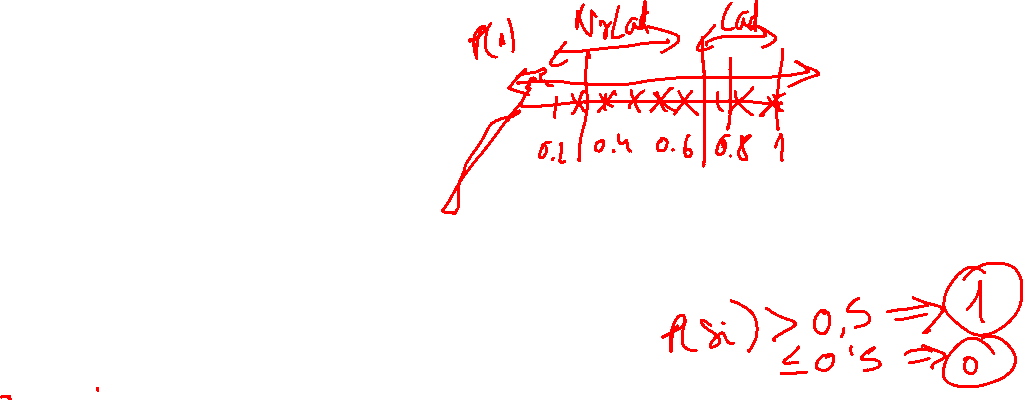 P(1) Nr Cat Cat
0.2 0.4 0.6 0.8 1
P(xi) > 0,5 ⇒ 1
≤ 0,5 ⇒ 0